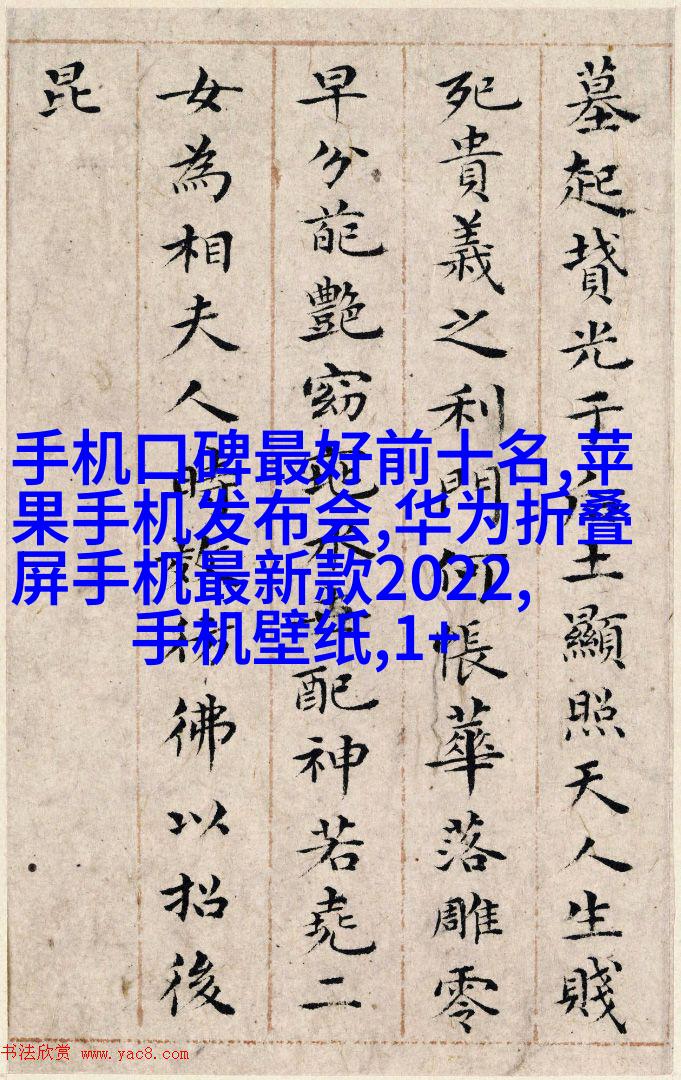 墓起光于土顯照天人生賤
死貴義之利門何帳華落雕零
早分葩艷窈配神若堯二
女為相夫人彿以招後
昆
手机口碑最好前十名,苹
果手机发布会,华为折叠
屏手机最新款2022,
手机壁纸,1+
书法欣赏 www.yac8.com